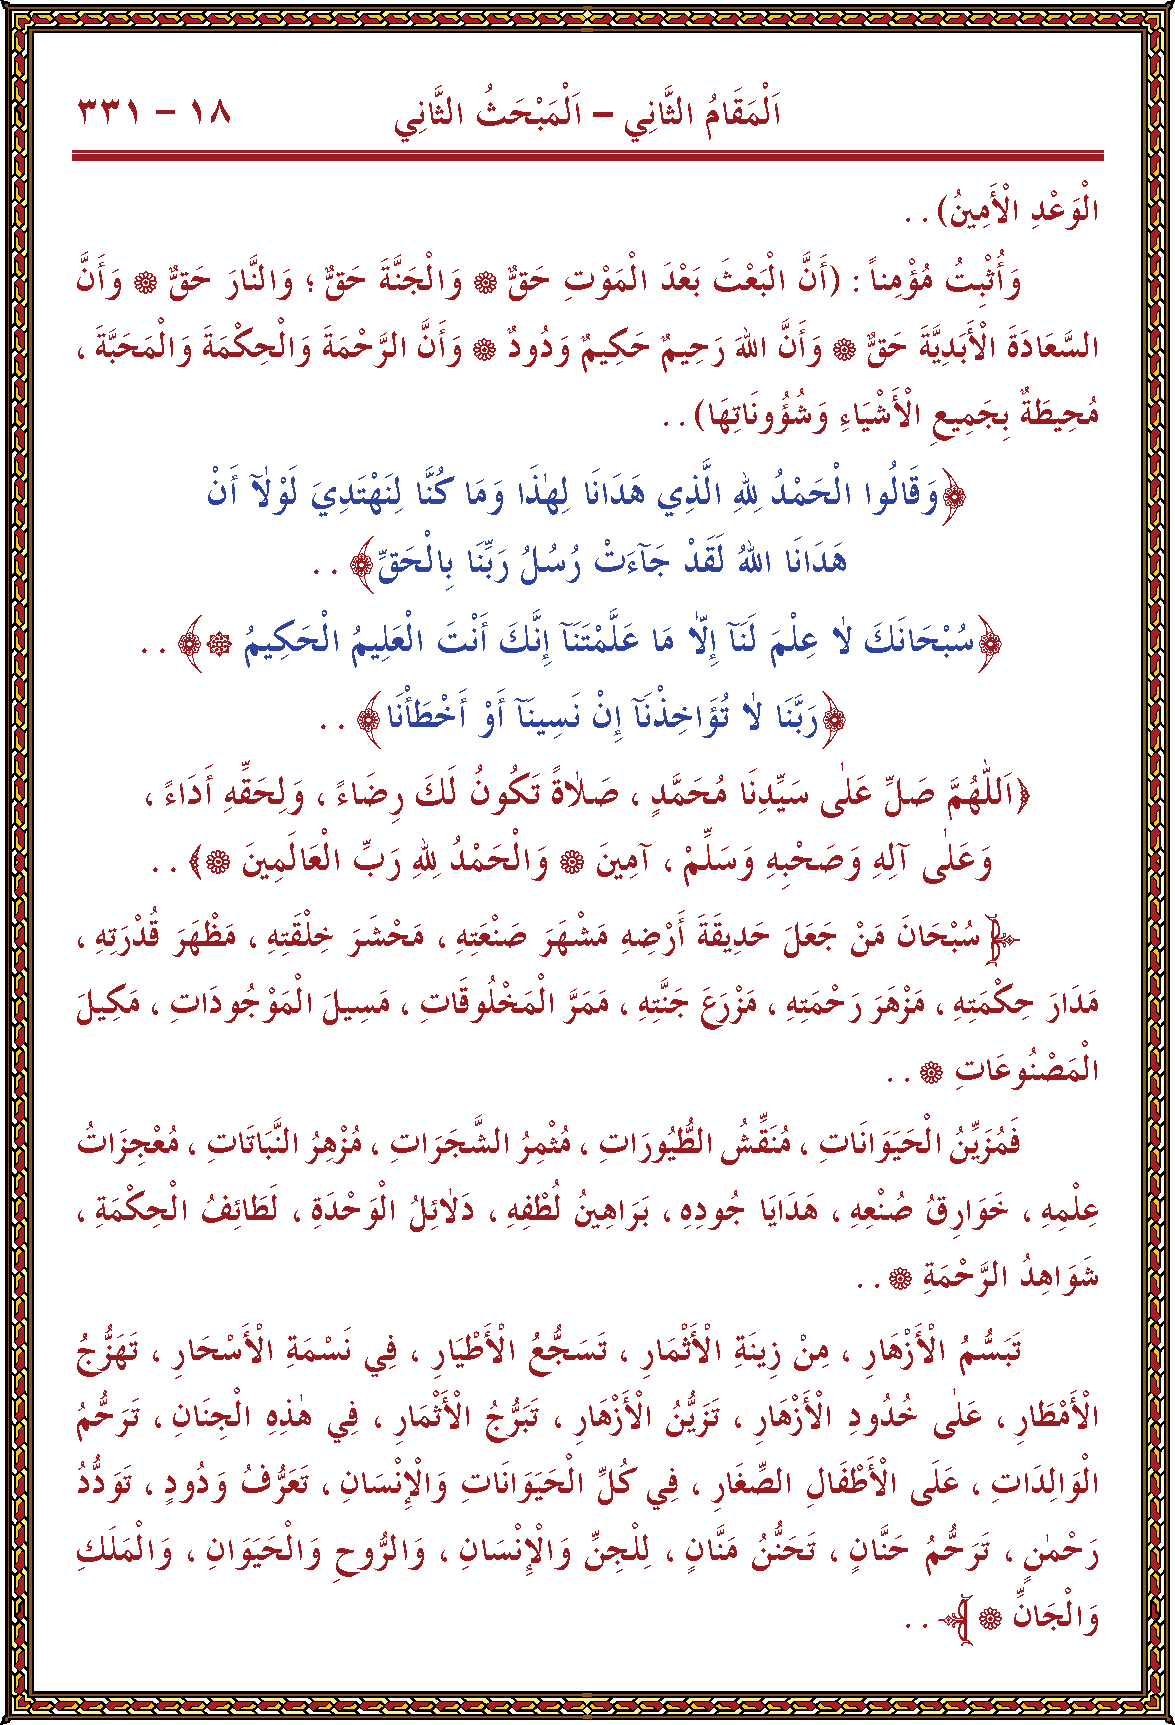 اَلْمَقَامُ الثَّانِي – اَلْمَبْحَثُ الثَّانِي ١٨ – ٣٣١
الْوَعْدِ الْأَمِينُ) . .
وَأُثْبِتُ مُؤْمِناً : (أَنَّ الْبَعْثَ بَعْدَ الْمَوْتِ حَقٌّ ۞ وَالْجَنَّةَ حَقٌّ ؛ وَالنَّارَ حَقٌّ ۞ وَأَنَّ
السَّعَادَةَ الْأَبَدِيَّةَ حَقٌّ ۞ وَأَنَّ اللهَ رَحِيمٌ حَكِيمٌ وَدُودٌ ۞ وَأَنَّ الرَّحْمَةَ وَالْحِكْمَةَ وَالْمَحَبَّةَ ،
مُحِيطَةٌ بِجَمِيعِ الْأَشْيَاءِ وَشُؤُونَاتِهَا) . .
﴿وَقَالُوا الْحَمْدُ لِلهِ الَّذِي هَدَانَا لِهٰذَا وَمَا كُنَّا لِنَهْتَدِيَ لَوْلَآ أَنْ
هَدَانَا اللهُ لَقَدْ جَآءَتْ رُسُلُ رَبِّنَا بِالْحَقِّ﴾ . .
﴿سُبْحَانَكَ لَا عِلْمَ لَنَآ إِلَّا مَا عَلَّمْتَنَآ إِنَّكَ أَنْتَ الْعَلِيمُ الْحَكِيمُ ۞﴾ . .
﴿رَبَّنَا لَا تُؤَاخِذْنَآ إِنْ نَسِينَآ أَوْ أَخْطَأْنَا﴾ . .
﴿اَللّٰهُمَّ صَلِّ عَلٰى سَيِّدِنَا مُحَمَّدٍ ، صَلَاةً تَكُونُ لَكَ رِضَاءً ، وَلِحَقِّهِ أَدَاءً ،
وَعَلٰى آلِهِ وَصَحْبِهِ وَسَلِّمْ ، آمِينَ ۞ وَالْحَمْدُ لِلهِ رَبِّ الْعَالَمِينَ ۞﴾ . .
سُبْحَانَ مَنْ جَعَلَ حَدِيقَةَ أَرْضِهِ مَشْهَرَ صَنْعَتِهِ ، مَحْشَرَ خِلْقَتِهِ ، مَظْهَرَ قُدْرَتِهِ ،
مَدَارَ حِكْمَتِهِ ، مَزْهَرَ رَحْمَتِهِ ، مَزْرَعَ جَنَّتِهِ ، مَمَرَّ الْمَخْلُوقَاتِ ، مَسِيلَ الْمَوْجُودَاتِ ، مَكِيلَ
الْمَصْنُوعَاتِ ۞ . .
فَمُزَيِّنُ الْحَيَوَانَاتِ ، مُنَقِّشُ الطُّيُورَاتِ ، مُثْمِرُ الشَّجَرَاتِ ، مُزْهِرُ النَّبَاتَاتِ ، مُعْجِزَاتُ
عِلْمِهِ ، خَوَارِقُ صُنْعِهِ ، هَدَايَا جُودِهِ ، بَرَاهِينُ لُطْفِهِ ، دَلَائِلُ الْوَحْدَةِ ، لَطَائِفُ الْحِكْمَةِ ،
شَوَاهِدُ الرَّحْمَةِ ۞ . .
تَبَسُّمُ الْأَزْهَارِ ، مِنْ زِينَةِ الْأَثْمَارِ ، تَسَجُّعُ الْأَطْيَارِ ، فِي نَسْمَةِ الْأَسْحَارِ ، تَهَزُّجُ
الْأَمْطَارِ ، عَلٰى خُدُودِ الْأَزْهَارِ ، تَزَيُّنُ الْأَزْهَارِ ، تَبَرُّجُ الْأَثْمَارِ ، فِي هٰذِهِ الْجِنَانِ ، تَرَحُّمُ
الْوَالِدَاتِ ، عَلَى الْأَطْفَالِ الصِّغَارِ ، فِي كُلِّ الْحَيَوَانَاتِ وَالْإِنْسَانِ ، تَعَرُّفُ وَدُودٍ ، تَوَدُّدُ
رَحْمٰنٍ ، تَرَحُّمُ حَنَّانٍ ، تَحَنُّنُ مَنَّانٍ ، لِلْجِنِّ وَالْإِنْسَانِ ، وَالرُّوحِ وَالْحَيَوَانِ ، وَالْمَلَكِ
وَالْجَانِّ ۞ . .